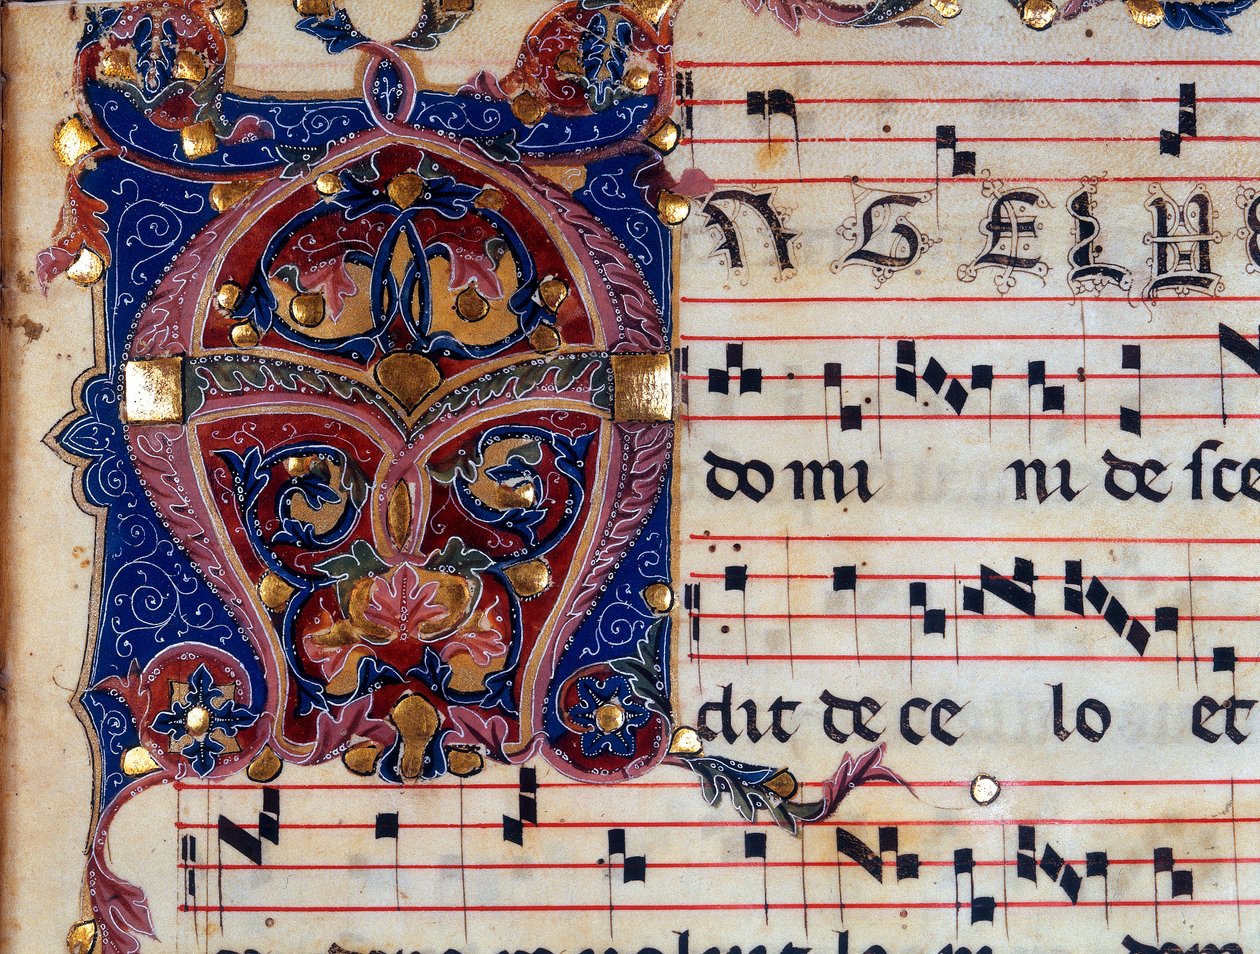 A NGELUS
domi ni de sce
dit de ce lo et